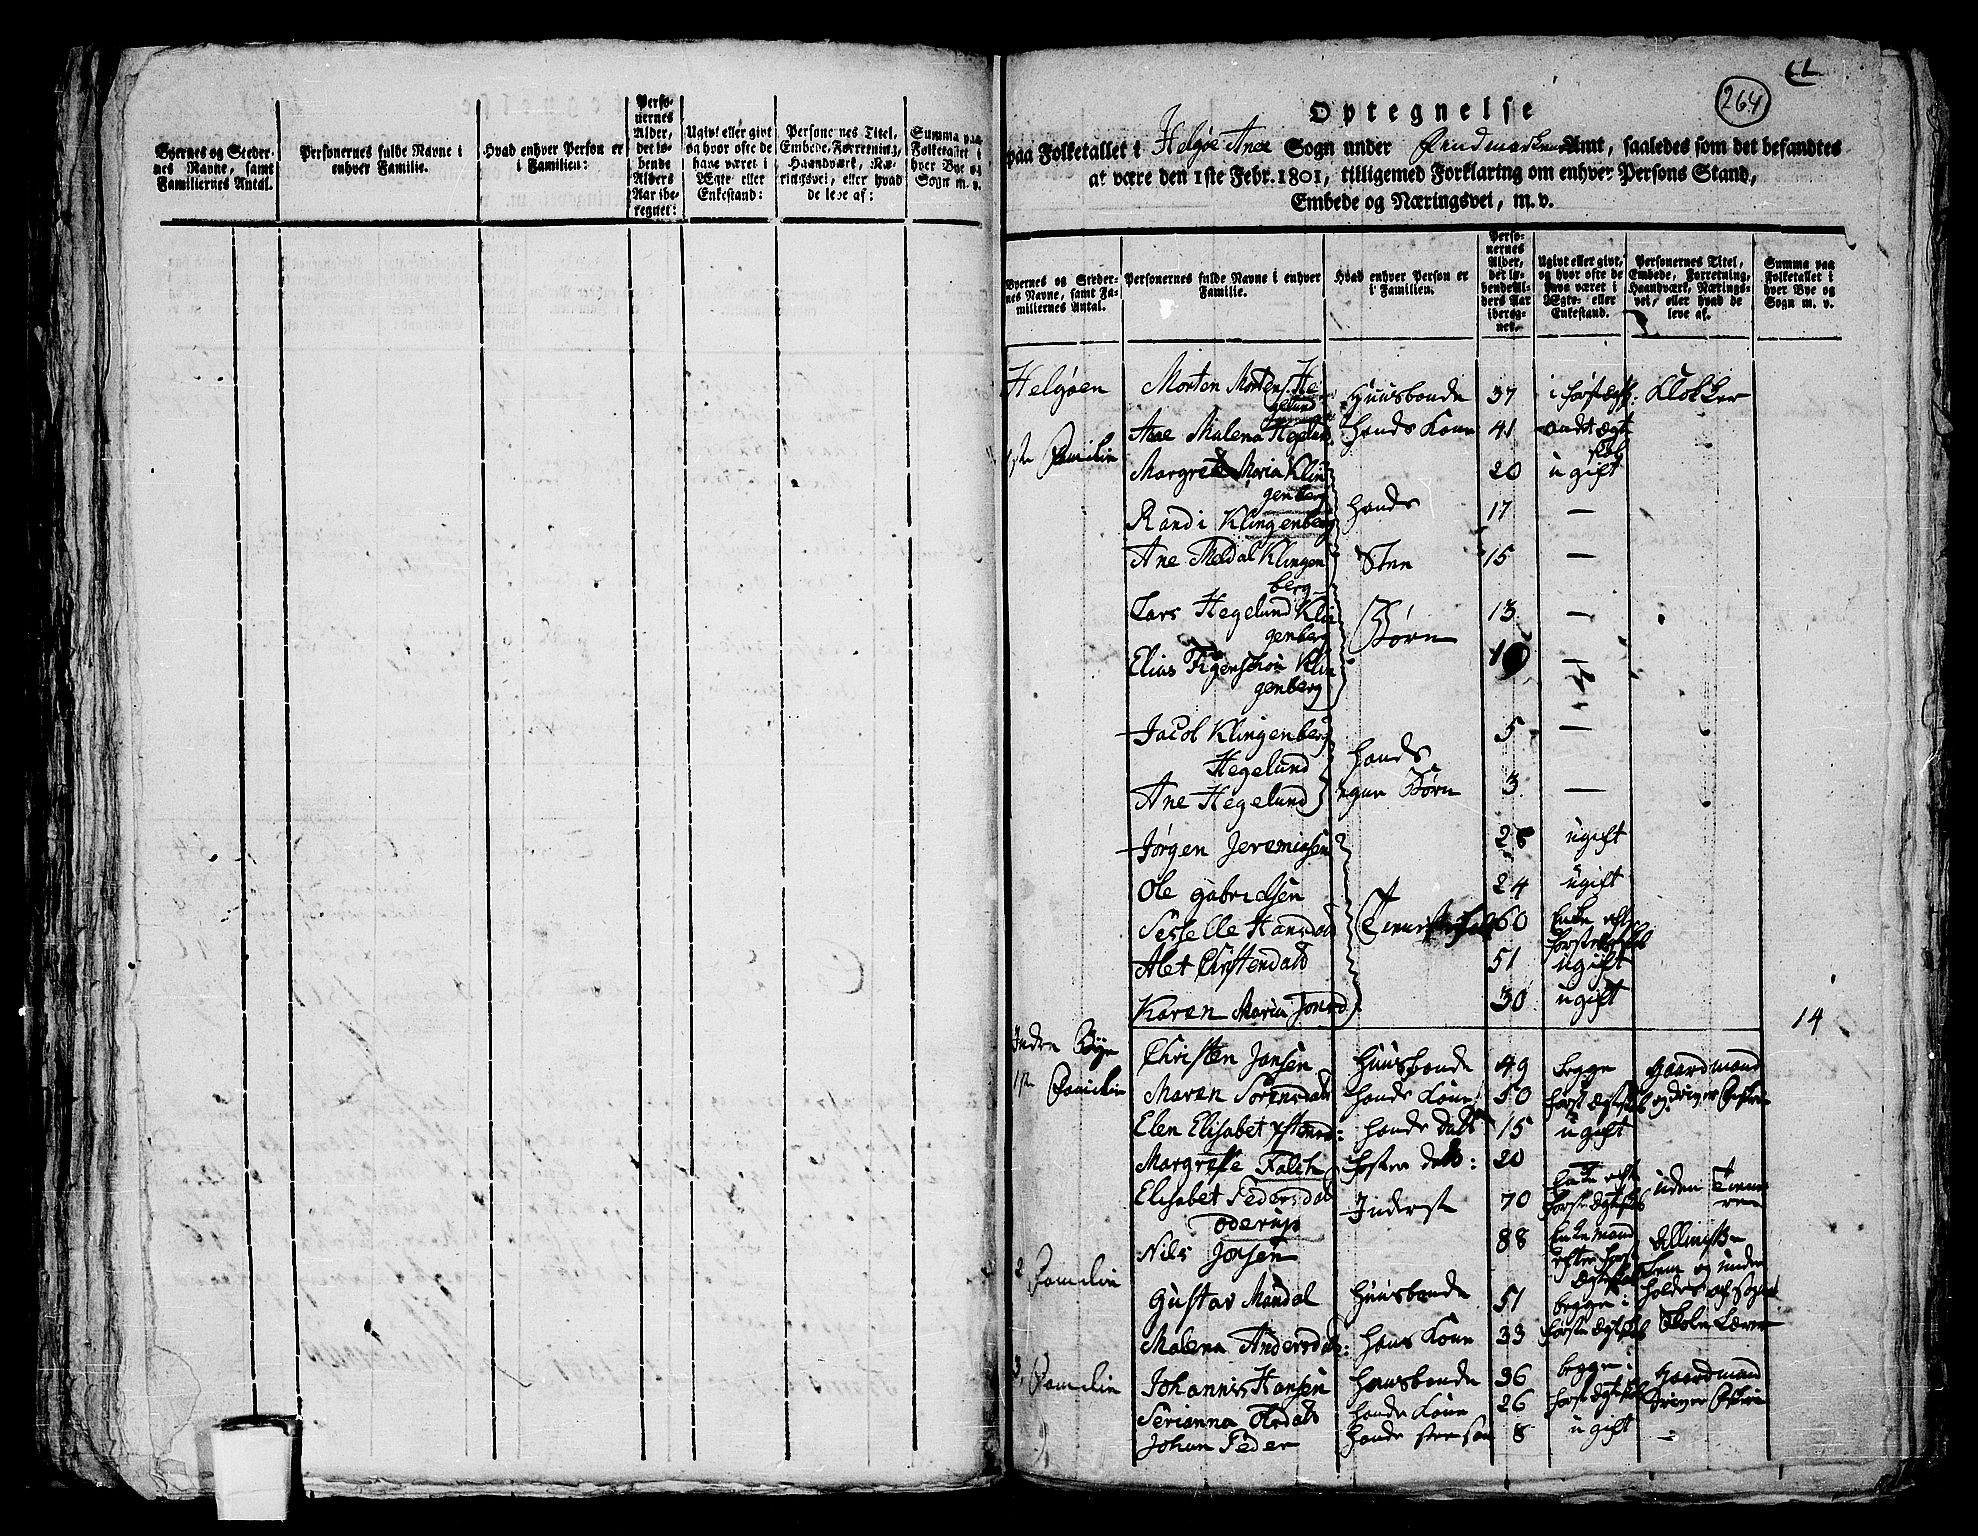 Byernes og Steder-
nes Navne, samt
Familiernes Antal.
Personernes fulde Navne i
enhver Familie.
Hvad enhver Person er
i Familien:
Perso-
nernes
Alder,
det lø-
bende
Alders
Aar ibe-
regnet:
Ugivt eller givt
og hvor ofte de
have været i
Ægte- eller
Enkestand:
Personernes Titel,
Embede, Forretning,
Haandværk, Næ-
ringsvei, eller hvad
de leve af:
Summa paa
Folketallet i
hver Bye og
Sogn m. v.
264
Optegnelse
paa Folketallet i Helgøe Anex Sogn under Findmarkens Amt, saaledes som det befandtes
at være den 1ste Febr. 1801, tilligemed Forklaring om enhver Persons Stand,
Embede og Næringsvei, m. v.
Byernes og Steder-
nes Navne, samt Fa-
miliernes Antal.
Personernes fulde Navne i enhver
Familie.
Hvad enhver Person er
i Familien.
Perso-
nernes
Alder,
det lø-
bende Al-
ders Aar
iberegnes.
Ugivt eller givt,
og hvor ofte de
have været i
Ægte- eller
Enkestand.
Personernes Titel,
Embede, Forretning,
Haandværk, Nærings-
vei, eller hvad de
leve af.
Summa paa
Folketallet i
hver Bye og
Sogn m. v.
Helgøen Morten Mortens. He Huusbonde 37 i første Ægtsk: Klokker
gelund
Ane Malena Hegelun hands Kone 41 andet ægt
skab
1ste Familie Margrete Maria Klin 20 ugift
genberg
Randi Klingenberg hands 17 —
Ane Meldal Klingen Steu 15 —
berg
Lars Hegelund Klin 13 —
genberg Børn
Elias Figenschou Klin 10 —
genberg
Jacob Klingenberg 5 —
Hegelund hands
Ane Hegelund egne Børn 3 —
Jørgen Jeremiasen 28 ugift
Ole Gabrielsen 24 ugift
Sesselle Hansdat Tienistefolk 60 Enke efter
første Ægtskab
Alet Christendatt 51 ugift
Karen Maria Jonsd 30 ugift
14
Indre Bye Christen Jonsen Huusbonde 49 begge Gaardmand
1ste Familie Maren Sørensdatt hands Kone 50 første Ægtskab og driver Fiskerie
Elen Elisabet Xstensd: hands datt 15 ugift
Margrette Falch foster datt: 20
Elisabet Pedersdat Inderst 70 Enke efter
første Ægtskab uden Tiene
ren
Oderup
Nils Jonsen 88 Enkemand
efter første
Ægteskab Allmisse
Lem og under
holdes af Sognet
2 Familie Gustav Mandal Huusbonde 51 begge i
Malena Andersdatt: hans Kone 33 første Ægtskab Skole Lærer
3. Familie Johannis Hansen Huusbonde 36 begge i Gaardmand
Serianna Olsdatt hands Kone 26 første Ægtskab Driver Fiskerie
Johan Peder hands steu søn 8 ugift —